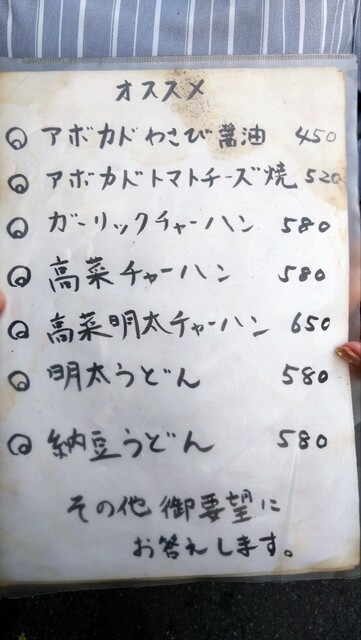 オススメ
アボカドわさび醤油 450
アボカドトマトチーズ焼 520
ガーリックチャーハン 580
高菜チャーハン 580
高菜明太チャーハン 650
明太うどん 580
納豆うどん 580
その他御要望に
お答えします。